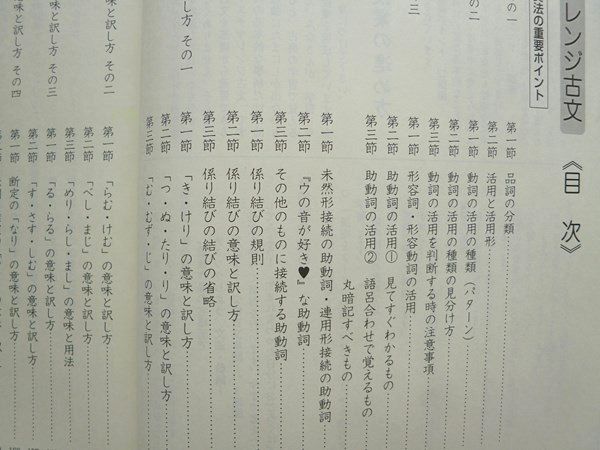 レンジ古文 《目 次》
法の重要ポイント
の一
第一節 品詞の分類
第二節 活用と活用形
の二
第一節 動詞の活用の種類(パターン)
第二節 動詞の活用の種類の見分け方
第三節 動詞の活用を判断する時の注意事項
第一節 形容詞・形容動詞の活用
第二節 助動詞の活用① 見てすぐわかるもの
第三節 助動詞の活用② 語呂合わせで覚えるもの
丸暗記すべきもの
第一節 未然形接続の助動詞・連用形接続の助動詞
第二節 『ウの音が好き♥』な助動詞
第三節 その他のものに接続する助動詞
第一節 係り結びの規則
第二節 係り結びの意味と訳し方
第三節 係り結びの結びの省略
味と訳し方 その一
第一節 「き・けり」の意味と訳し方
第二節 「つ・ぬ・たり・り」の意味と訳し方
第三節 「む・むず・じ」の意味と訳し方
味と訳し方 その二
第一節 「らむ・けむ」の意味と訳し方
第二節 「べし・まじ」の意味と訳し方
第三節 「めり・らし・まし」の意味と用法
味と訳し方 その三
第一節 「る・らる」の意味と訳し方
第二節 「す・さす・しむ」の意味と訳し方
味と訳し方 その四
第一節 断定の「なり」の意味と訳し方